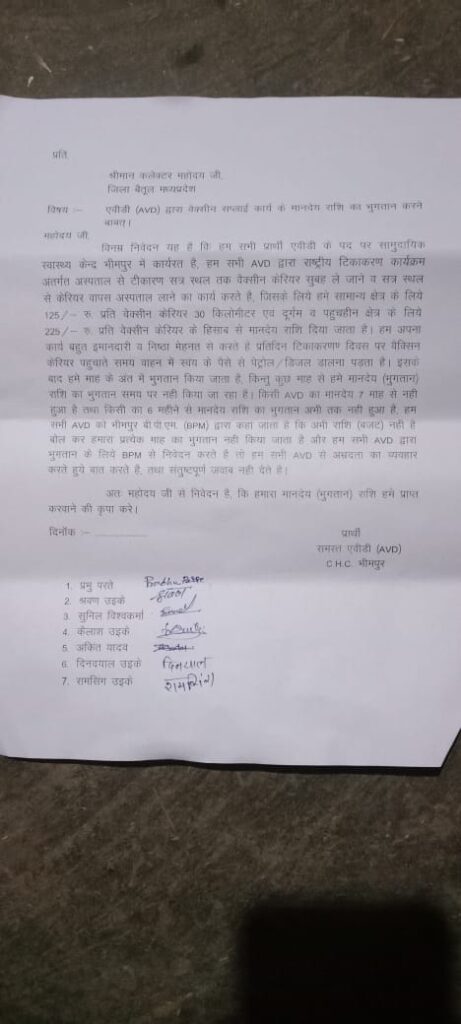 प्रति
श्रीमान कलेक्टर महोदय जी,
जिला बैतूल मध्यप्रदेश
विषय :– एवीडी (AVD) द्वारा वेक्सीन सप्लाई कार्य के मानदेय राशि का भुगतान करने
बाबत्।
महोदय जी,
विनम्र निवेदन यह है कि हम सभी प्रार्थी एवीडी के पद पर सामुदायिक
स्वास्थ्य केन्द भीमपुर में कार्यरत है, हम सभी AVD द्वारा राष्ट्रीय टिकाकरण कार्यक्रम
अंतर्गत अस्पताल से टीकारण सत्र स्थल तक वैक्सीन केरियर सुबह ले जाने व सत्र स्थल
से केरियर वापस अस्पताल लाने का कार्य करते है, जिसके लिये हमे सामान्य क्षेत्र के लिये
125/– रु. प्रति वेक्सीन केरियर 30 किलोमीटर एवं दूर्गम व पहुचहीन क्षेत्र के लिये
225/– रु. प्रति वेक्सीन केरियर के हिसाब से मानदेय राशि दिया जाता है। हम अपना
कार्य बहुत इमानदारी व निष्ठा मेहनत से करते है प्रतिदिन टिकाकरण दिवस पर वैक्सिन
केरियर पहुचाते समय वाहन में स्वंय के पैसे से पेट्रोल/डिजल डालना पड़ता है। इसके
बाद हमे माह के अंत में भुगतान किया जाता है, किन्तु कुछ माह से हमे मानदेय (भुगतान)
राशि का भुगतान समय पर नही किया जा रहा है। किसी AVD का मानदेय 7 माह से नही
हुआ है तथा किसी का 6 महीने से मानदेय राशि का भुगतान अभी तक नही हुआ है, हम
सभी AVD को भीमपुर बी.पी.एम. (BPM) द्वारा कहा जाता है कि अभी राशि (बजट) नही है
बोल कर हमारा प्रत्येक माह का भुगतान नही किया जाता है और हम सभी AVD द्वारा
भुगतान के लिये BPM से निवेदन करते है तो हम सभी AVD से अभ्रदता का व्यवहार
करते हुये बात करते है, तथा संतुष्टपूर्ण जवाब नही देते है!
अतः महोदय जी से निवेदन है, कि हमारा मानदेय (भुगतान) राशि हमे प्राप्त
करवाने की कृपा करे।
दिनॉक :– ....................
प्रार्थी
समस्त एवीडी (AVD)
C.H.C. भीमपुर
1. प्रभु परते
2. श्रवण उइके
3. सुनिल विश्वकर्मा
4. कैलाश उइके
5. अंकित यादव
6. दिनदयाल उइके
7. रामसिंग उइके